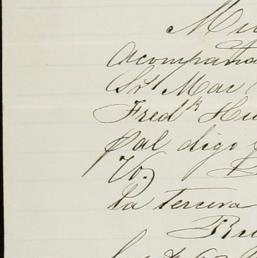 Mu
acompaña
Sr Mar
Fredk Hu
pal digo
Vo.)
la tercera
Ru